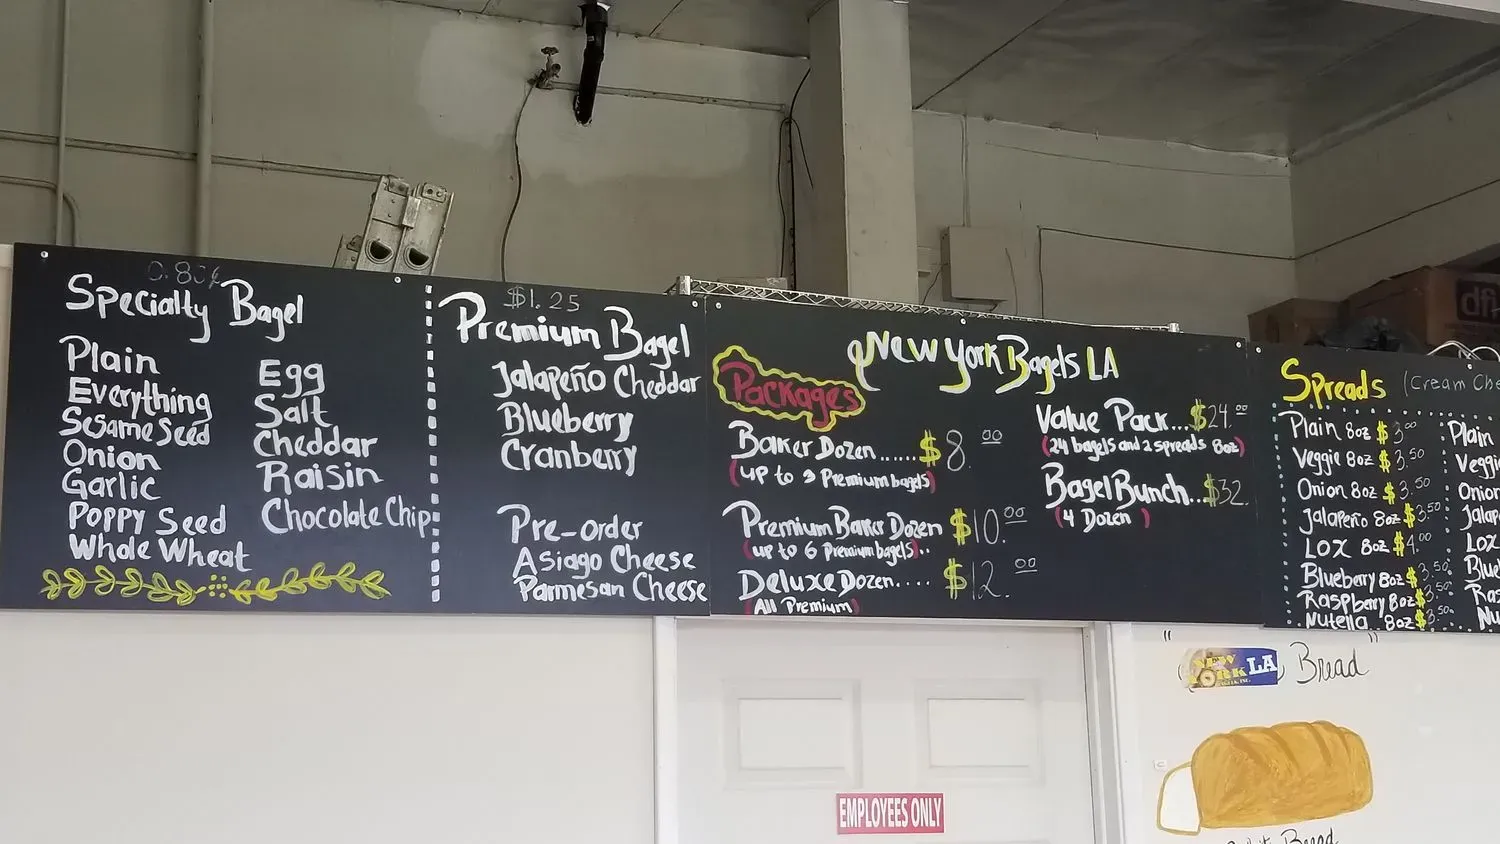 Specialty Bagel
Plain
Everything
Sesame Seed
Onion
Garlic
Poppy Seed
Whole Wheat
Egg
Salt
Cheddar
Raisin
Chocolate Chip
$1.25
Premium Bagel
Jalapeño Cheddar
Blueberry
Cranberry
Pre-order
Asiago Cheese
Parmesan Cheese
New York Bagels LA
Packages
Baker Dozen...... $8.00
(up to 3 Premium bagels)
Premium Baker Dozen $10.00
(up to 6 Premium bagels)..
Deluxe Dozen.... $12.00
(All Premium)
Value Pack...$24.00
(24 bagels and 2 spreads 8oz)
Bagel Bunch...$32.
(4 Dozen)
Spreads (Cream Che
Plain 8oz $3.00
Veggie 8oz $3.50
Onion 8oz $3.50
Jalapeño 8oz $3.50
Lox 8oz $4.00
Blueberry 8oz $3.50
Raspberry 8oz $3.50
Nutella 8oz $3.50
Plain
Veggi
Onion
Jalap
Lox
Blue
Ras
Nu
"NEW YORK LA" Bread
EMPLOYEES ONLY
Bread